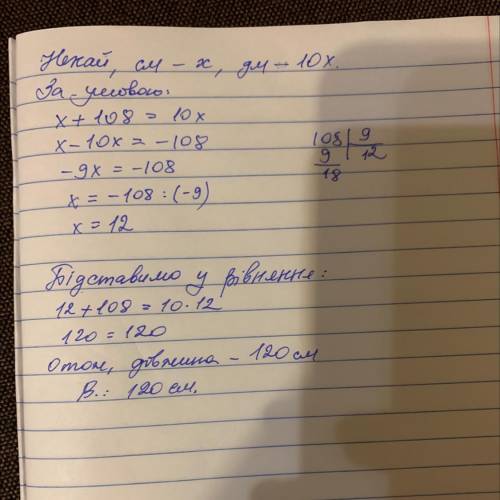 Нехай, см - х, дм - 10х.
За умовою:
х + 108 = 10х
х - 10х = -108
-9х = -108
х = -108 : (-9)
х = 12
108 | 9
9 12
18
Підставимо у рівняння:
12 + 108 = 10 · 12
120 = 120
Отож, довжина - 120 см
В.: 120 см.